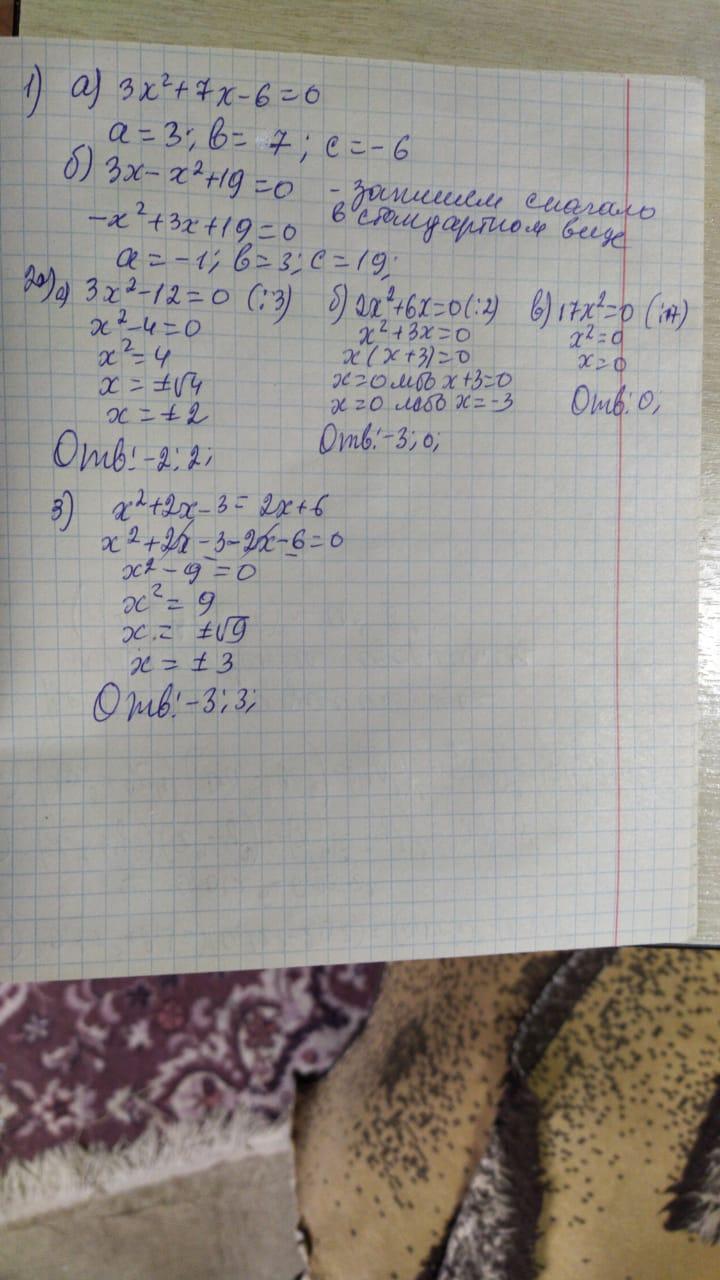 1) а) 3x²+7x-6=0
a=3; в= 7; c=-6
б) 3x-x²+19=0 - запишем сначало
в стандартном виде
-x²+3x+19=0
a=-1; в=3; c=19;
2) а) 3x²-12=0 (:3)
x²-4=0
x²=4
x=±√4
x=±2
Отв: -2; 2;
б) 2x²+6x=0 (:2)
x²+3x=0
x(x+3)=0
x=0 либо x+3=0
x=0 либо x=-3
Отв: -3; 0;
в) 17x²=0 (:17)
x²=0
x=0
Отв: 0;
3) x²+2x-3=2x+6
x²+2x-3-2x-6=0
x²-9=0
x²=9
x=±√9
x=±3
Отв: -3; 3;